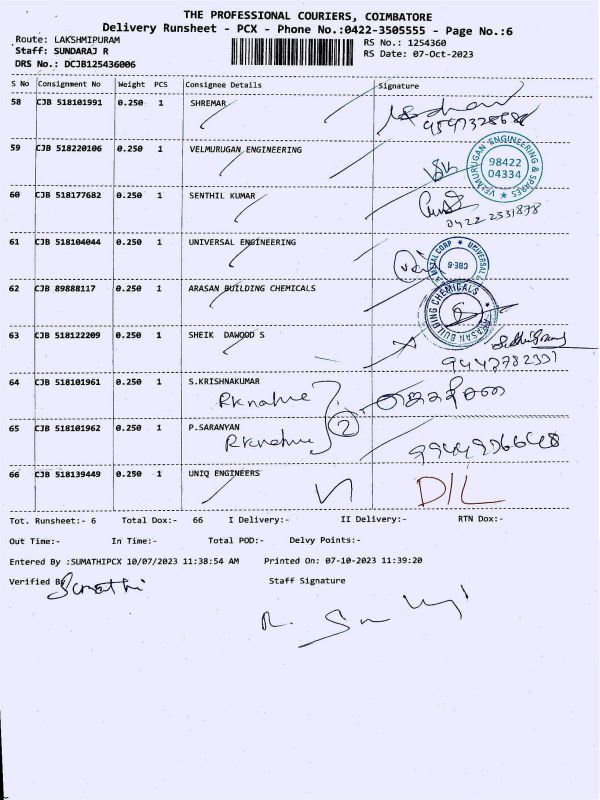 THE PROFESSIONAL COURIERS, COIMBATORE
Delivery Runsheet - PCX - Phone No.:0422-3505555 - Page No.:6
Route: LAKSHMIPURAM
RS No.: 1254360
Staff: SUNDARAJ R
RS Date: 07-Oct-2023
DRS No.: DCJB125436006
S No Consignment No Weight PCS Consignee Details Signature
58 CJB 518101991 0.250 1 SHREMAR
59 CJB 518220106 0.250 1 VELMURUGAN ENGINEERING
VELMURUGAN ENGINEERING & SPARES
98422
04334
60 CJB 518177682 0.250 1 SENTHIL KUMAR
0422 2531878
61 CJB 518104044 0.250 1 UNIVERSAL ENGINEERING
UNIVERSAL METAL CORP
CBE-6
62 CJB 89888117 0.250 1 ARASAN BUILDING CHEMICALS
ARASAN BUILDING CHEMICALS
63 CJB 518122209 0.250 1 SHEIK DAWOOD S
9443782331
64 CJB 518101961 0.250 1 S.KRISHNAKUMAR
2
65 CJB 518101962 0.250 1 P.SARANYAN
66 CJB 518139449 0.250 1 UNIQ ENGINEERS
D/L
Tot. Runsheet:- 6 Total Dox:- 66 I Delivery:- II Delivery:- RTN Dox:-
Out Time:- In Time:- Total POD:- Delvy Points:-
Entered By :SUMATHIPCX 10/07/2023 11:38:54 AM Printed On: 07-10-2023 11:39:20
Verified By Sumathi Staff Signature